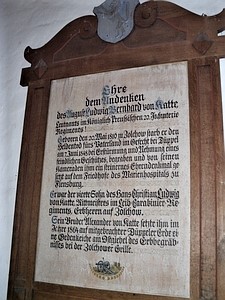 Ehre
dem Andenken
des August Ludwig Bernhard von Katte
Leutnants im Königlich Preußischen 20. Infanterie
Regiments!
Geboren den 20. Mai 1810 zu Zolchow starb er den
Heldentod fürs Vaterland im Gefecht bei Düppel
am Juni 1848 bei Erstürmung und Nehmung eines
feindlichen Geschützes, begraben und von seinen
Kameraden ihm ein steinernes Ehrendenkmal ge
setzt auf dem Friedhofe des Marienhospitals zu
Flensburg.
Er war der vierte Sohn des Hans Christian Ludwig
von Katte, Rittmeisters im Leib Carabinier-Re
giments, Erbherrn auf Zolchow.
Sein Bruder Alexander von Katte setzte ihm im
Jahre 1864 auf mitgebrachter Düppeler Erde ei
ne Gedenkeiche am Ostgiebel des Erbbegräb
nisses bei der Zolchower Grille.